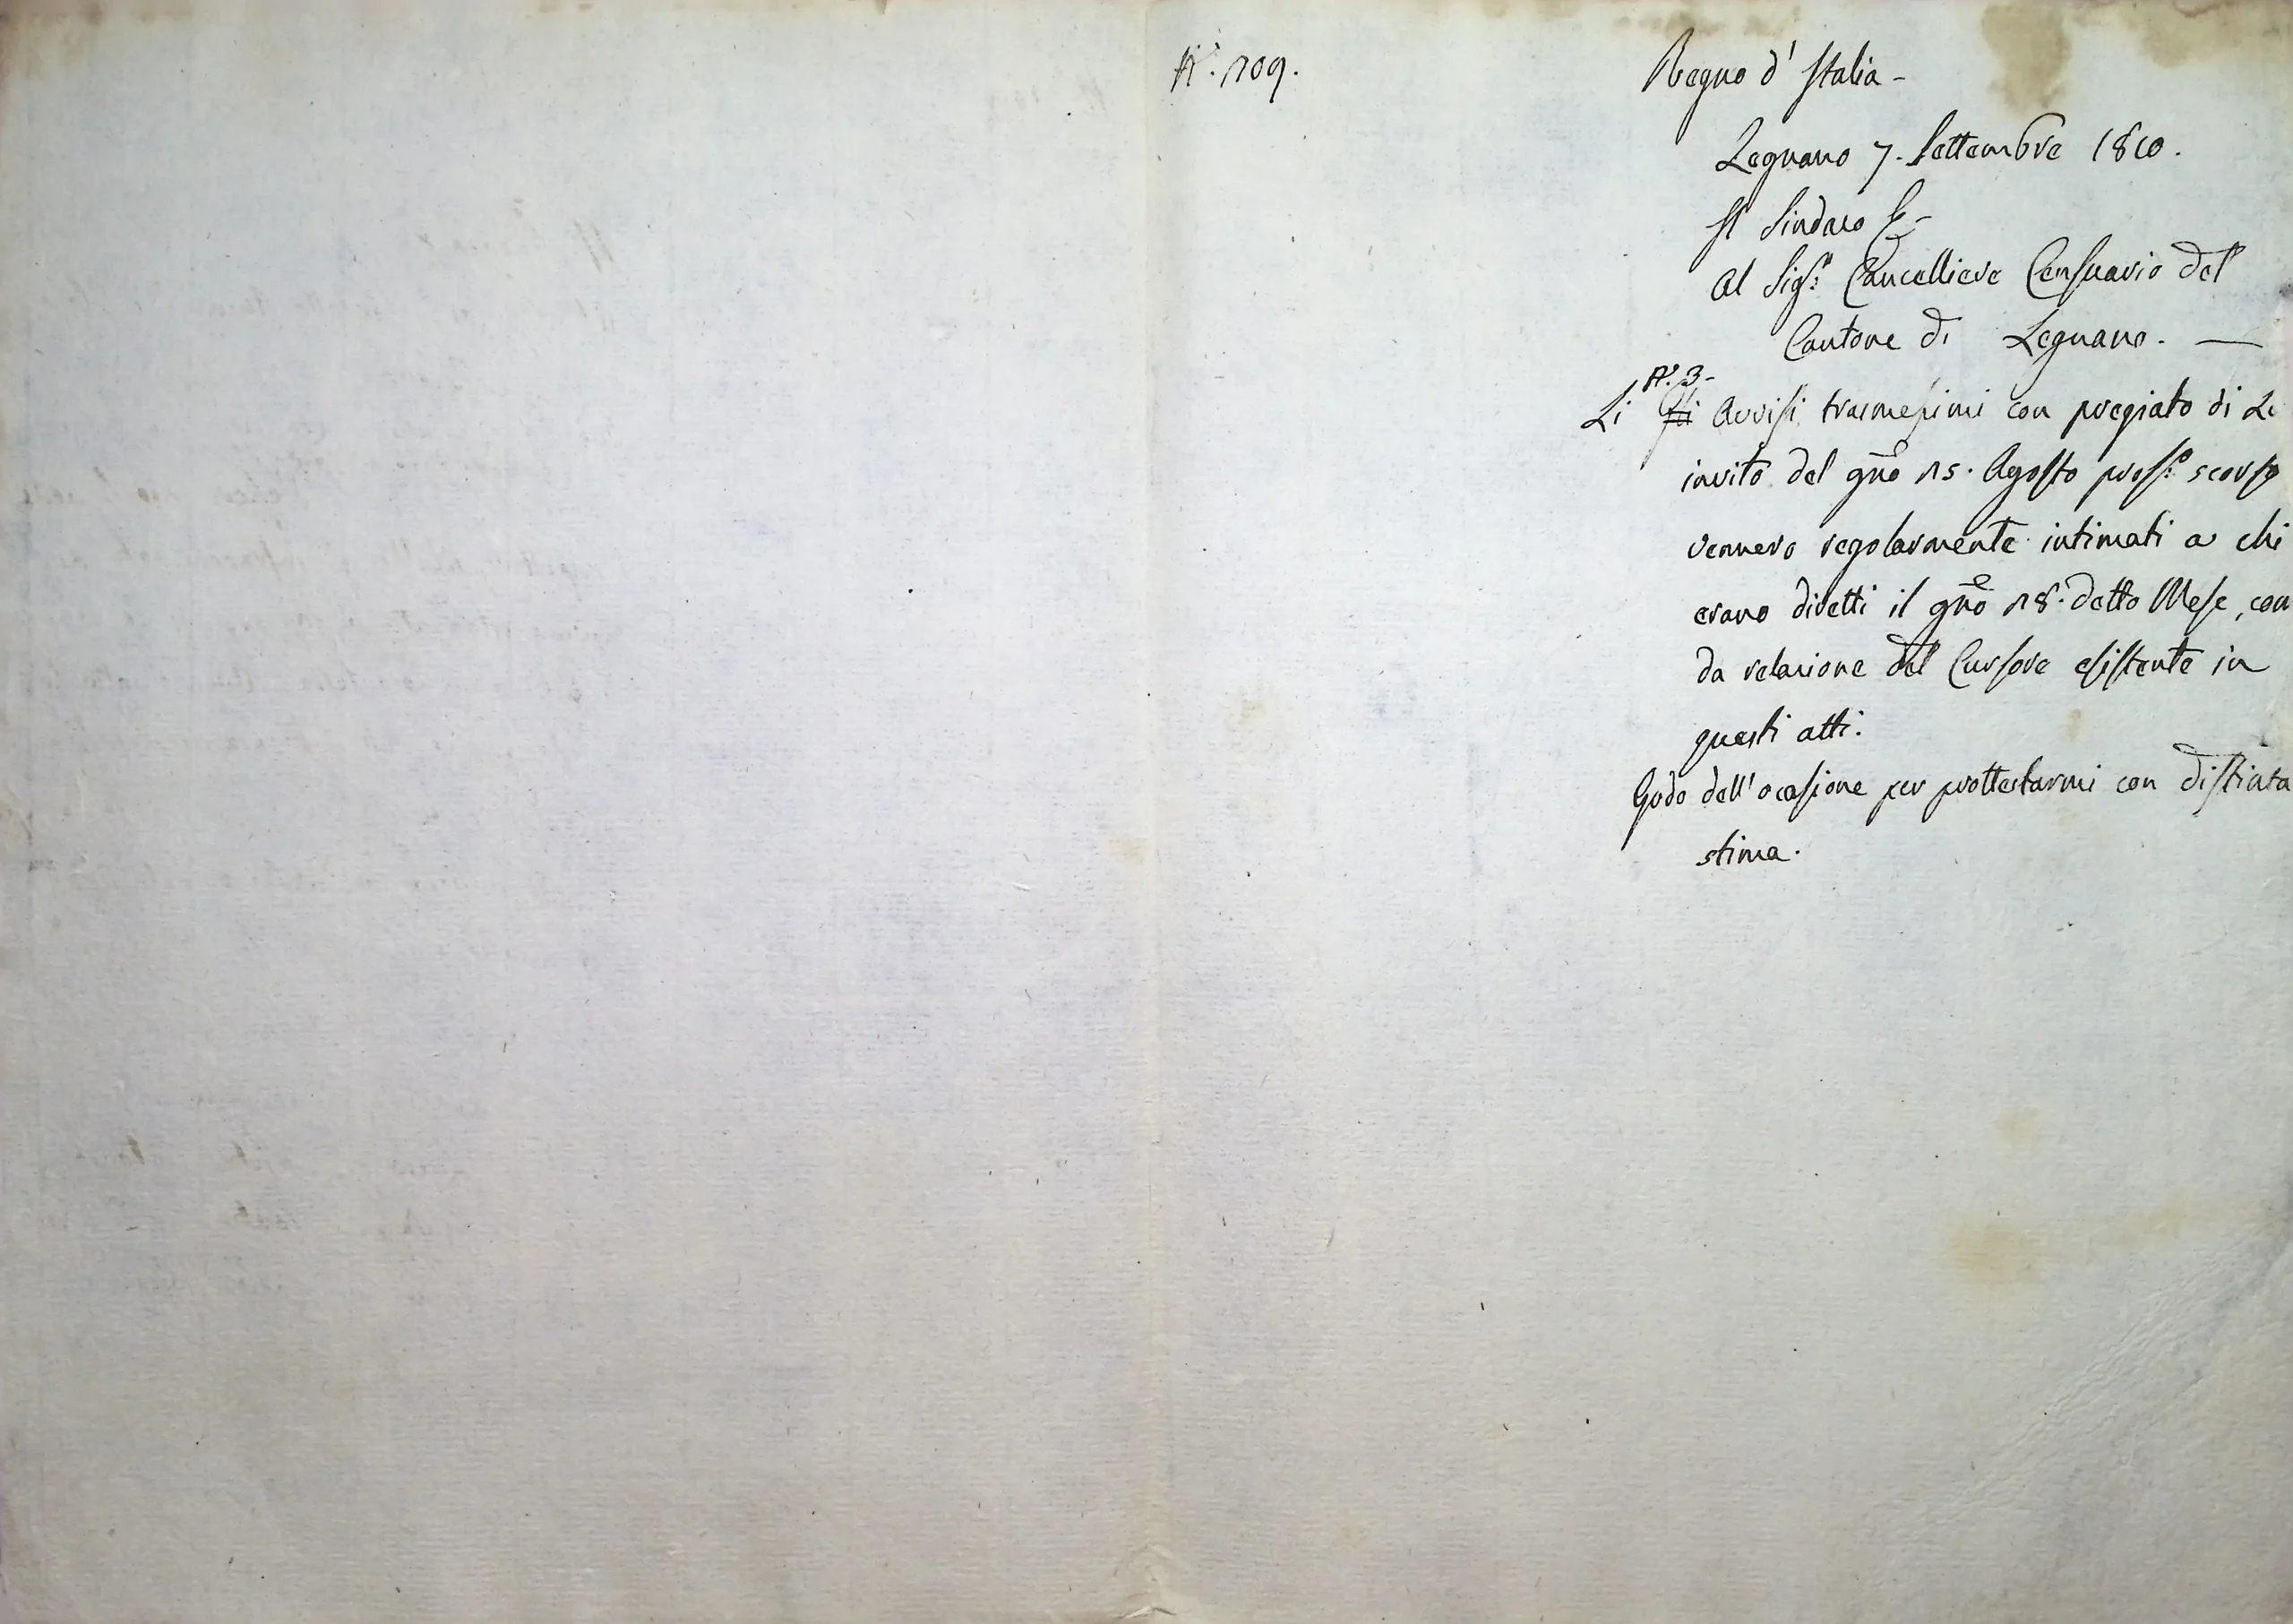 N.° 109.
Regno d'Italia -
Legnano 7. Settembre 1810.
Il Sindaco
Al Sig.r Cancelliere Censuario del
Cantone di Legnano. —
N.° 3 -
Li Avvisi trasmessimi con pregiato di
invito del gno 15. Agosto pross.o scorso
vennero regolarmente intimati a chi
erano diretti il gno 18. detto Mese, con
da relazione del Cursore esistente in
questi atti.
Godo dell'ocasione per prottestarmi con distinta
stima.